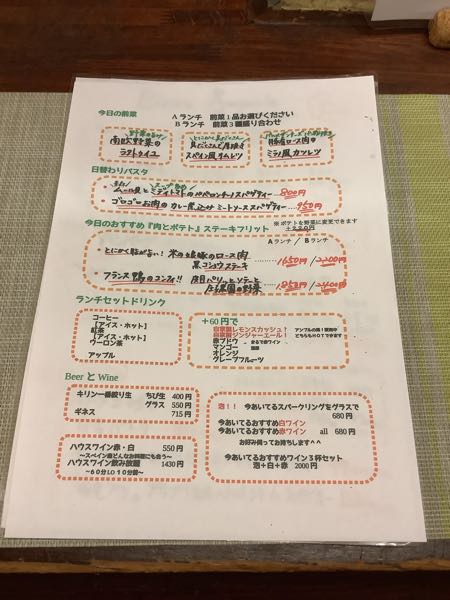 今日の前菜
Aランチ 前菜1品お選びください
Bランチ 前菜3種盛り合わせ
南欧野菜の
ラタトゥイユ
具だくさんで厚焼き
スペイン風オムレツ
豚ロース肉の
ミラノ風カツレツ
日替わりパスタ
ムール貝とミニトマトのペペロンチーノスパゲティー 800円
・ゴロゴロお肉のカレー煮込みミートソーススパゲティー 950円
今日のおすすめ『肉とポテト』ステーキフリット
※ポテトを野菜に変更できます
+220円
Aランチ / Bランチ
・とにかく脂が旨い! 米の娘豚のロース肉
黒コショウステーキ
1650円 / 2200円
・フランス鴨のコンフィ!! 皮目パリッとソテーと
1850円 / 2400円
ランチセットドリンク
コーヒー
【アイス・ホット】
紅茶
【アイス・ホット】
ウーロン茶
アップル
+60円で
自家製レモンスカッシュ!
自家製ジンジャーエール!
どちらもHOTできます
赤ブドウ
マンゴー
オレンジ
グレープフルーツ
Beer と Wine
キリン一番搾り生 ちび生 400円
グラス 550円
ギネス 715円
ハウスワイン赤・白 550円
~スペイン産どんなお料理にも合う~
ハウスワイン飲み放題 1430円
~60分LO10分前~
泡!! 今あいてるスパークリングをグラスで
680円
今あいてるおすすめ白ワイン
今あいてるおすすめ赤ワイン all 680円
お好み伺ってお持ちします^^
今あいてるおすすめワイン3杯セット
泡+白+赤 2000円